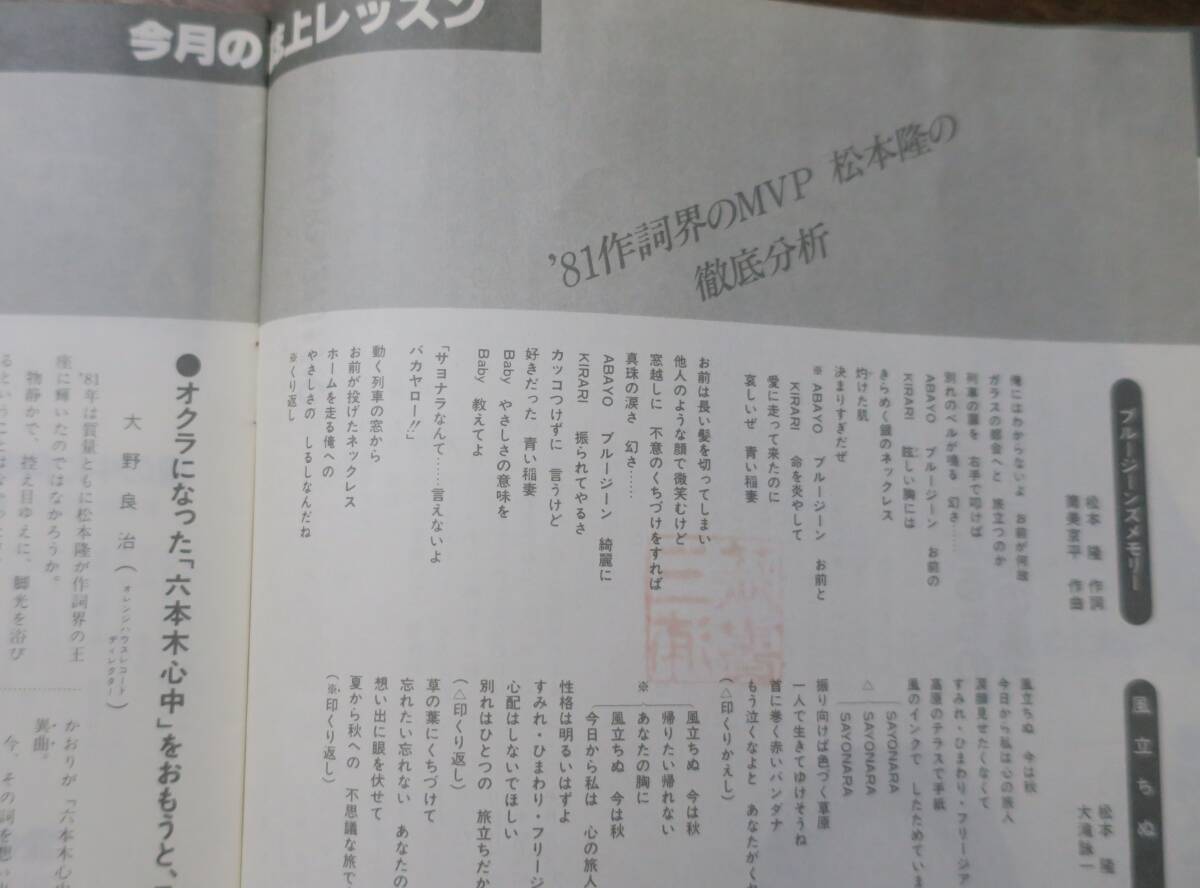 今月の誌上レッスン
'81作詞界のMVP 松本隆の
徹底分析
ブルージーンズメモリー
松本 隆 作詞
筒美京平 作曲
俺にはわからないよ お前が何故
ガラスの都会へと 旅立つのか
列車の扉を 右手で叩けば
別れのベルが鳴る 幻さ……
ABAYO ブルージーン お前の
KIRARI 眩しい胸には
きらめく銀のネックレス
灼けた肌
決まりすぎだぜ
※ ABAYO ブルージーン お前と
KIRARI 命を炎やして
愛に走って来たのに
哀しいぜ 青い稲妻
お前は長い髪を切ってしまい
他人のような顔で微笑むけど
窓越しに 不意のくちづけをすれば
真珠の涙さ 幻さ……
ABAYO ブルージーン 綺麗に
KIRARI 振られてやるさ
カッコつけずに 言うけど
好きだった 青い稲妻
Baby やさしさの意味を
Baby 教えてよ
「サヨナラなんて……言えないよ
バカヤロー!!」
動く列車の窓から
お前が投げたネックレス
ホームを走る俺への
やさしさの しるしなんだね
※くり返し
風立ちぬ
松本 隆
大滝詠一
風立ちぬ 今は秋
今日から私は心の旅人
涙顔見せたくなくて
すみれ・ひまわり・フリージア
高原のテラスで手紙
風のインクで したためていま
SAYONARA
△ SAYONARA
SAYONARA
振り向けば色づく草原
一人で生きてゆけそうね
首に巻く赤いバンダナ
もう泣くなよと あなたがく
(△印くりかえし)
風立ちぬ 今は秋
帰りたい帰れない
※ あなたの胸に
風立ちぬ 今は秋
今日から私は 心の旅人
性格は明るいはずよ
すみれ・ひまわり・フリージ
心配はしないでほしい
別れはひとつの 旅立ちだか
(△印くり返し)
草の葉にくちづけて
忘れたい忘れない あなたの
想い出に眼を伏せて
夏から秋への 不思議な旅で
(※印くり返し)
●オクラになった「六本木心中」をおもうと、
大野良治(オレンジハウスレコード
ディレクター)
'81年は質量ともに松本隆が作詞界の王
座に輝いたのではなかろうか。
物静かで、控え目ゆえに、脚光を浴び
かおりが「六本木心中
異曲。
今、その詞を想い